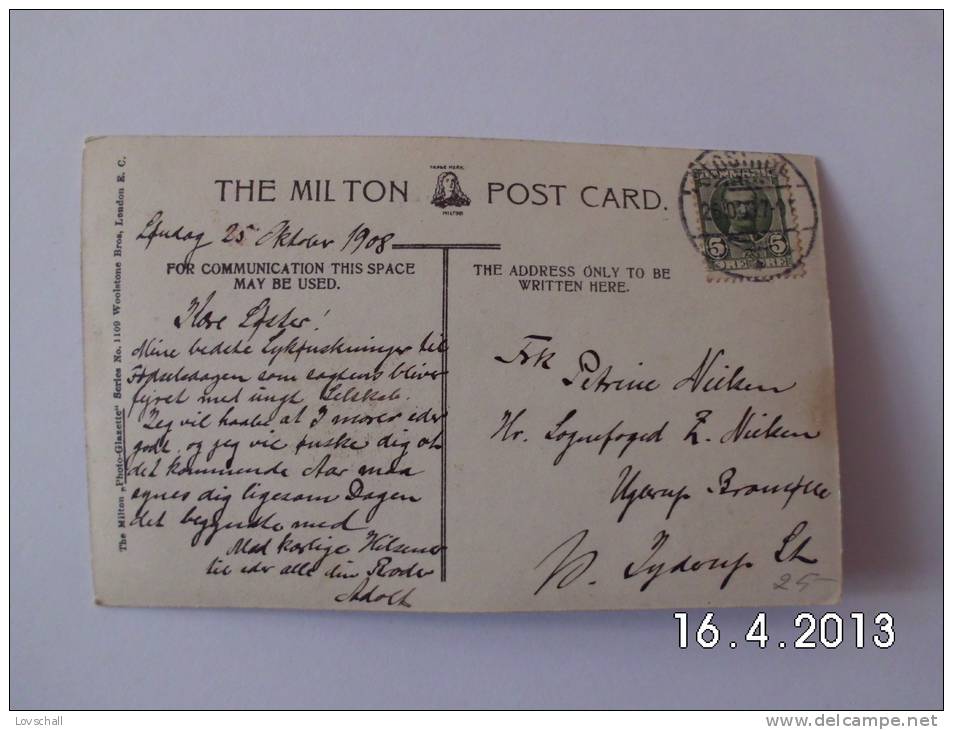 TRADE MARK
THE MILTON POST CARD.
MILTON
Søndag 25 Oktober 1908
FOR COMMUNICATION THIS SPACE
MAY BE USED.
THE ADDRESS ONLY TO BE
WRITTEN HERE.
The Milton „Photo-Glazette" Series No. 1109 Woolstone Bros, London E. C.
Kære Søster!
Mine bedste Lykønskninger til
Fødselsdagen som sagtens bliver
fejret med ungt Selskab.
Jeg vil haabe at I morer eder
godt, og jeg vil ønske dig at
det kommende Aar maa
egnes dig ligesom Dagen
det begyndte med
Med kærlige Hilsener
til eder alle din Broder
Adolf
Frk Petrine Nielsen
Hr. Sognefoged Z. Nielsen
Ugerup
pr. Tyderup St
5 5
25-
16.4.2013
Lovschall
www.delcampe.net